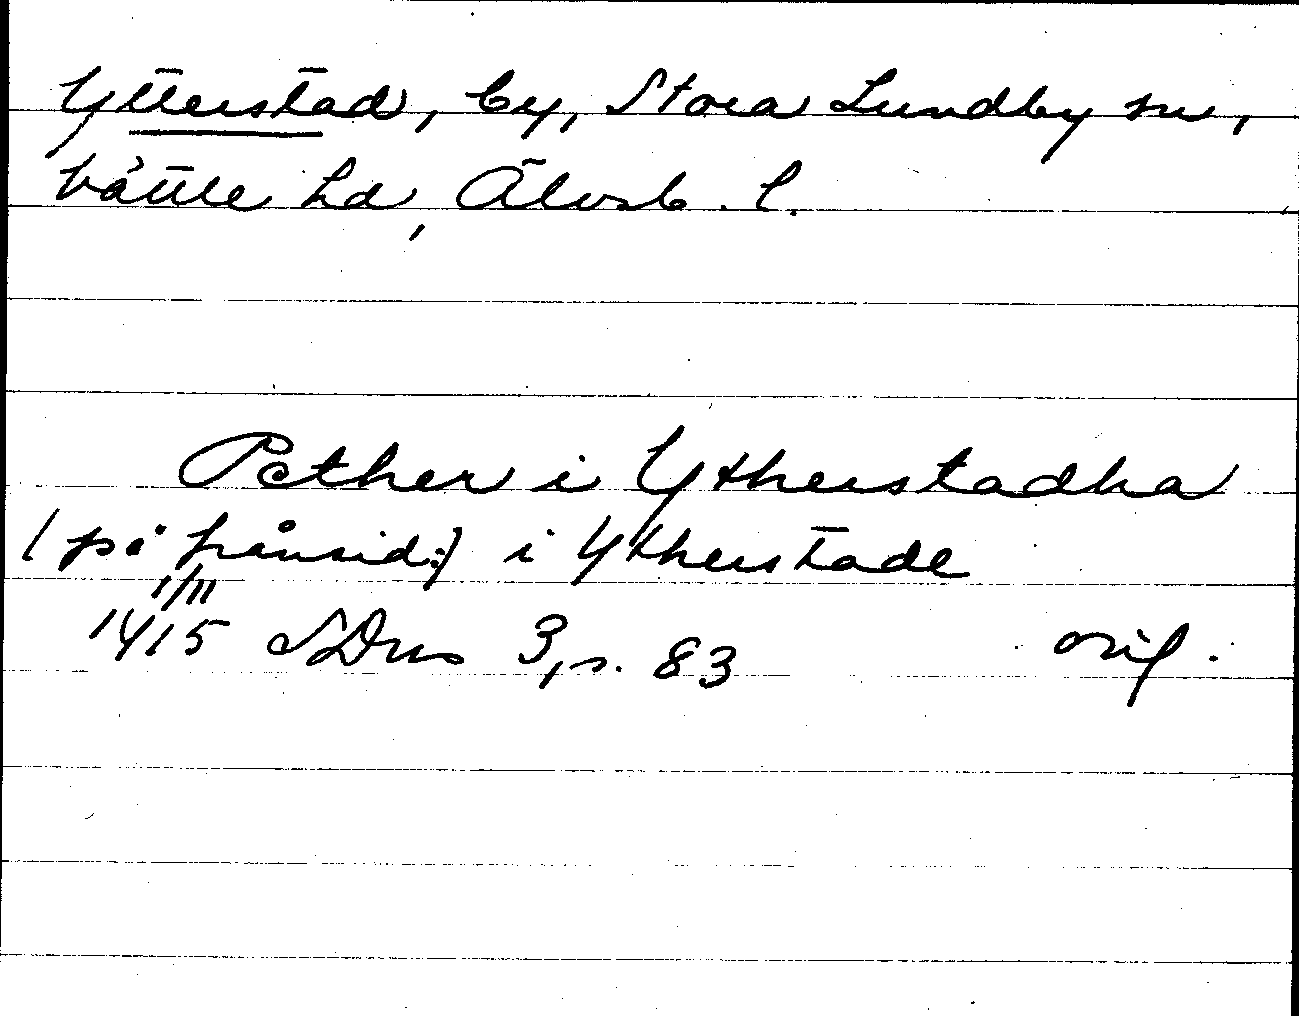 Ytterstad, by, Stora Lundby sn,
Vättle hd, Älvsb. l.
Pether i Ytherstadha
(på frånsid:) i Ytherstade
1/11
1415 SDns 3, s. 83 orig.